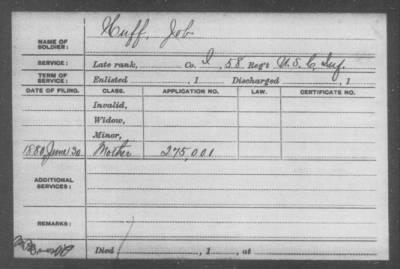 NAME OF SOLDIER: Huff, Job
SERVICE: Late rank, Co. I, 58 Reg't U.S.C. Inf.
TERM OF SERVICE: Enlisted , 1 Discharged , 1
DATE OF FILING. CLASS. APPLICATION NO. LAW. CERTIFICATE NO.
Invalid,
Widow,
Minor,
1880 June 30 Mother 275,001
ADDITIONAL SERVICES:
REMARKS:
Died , 1 , at